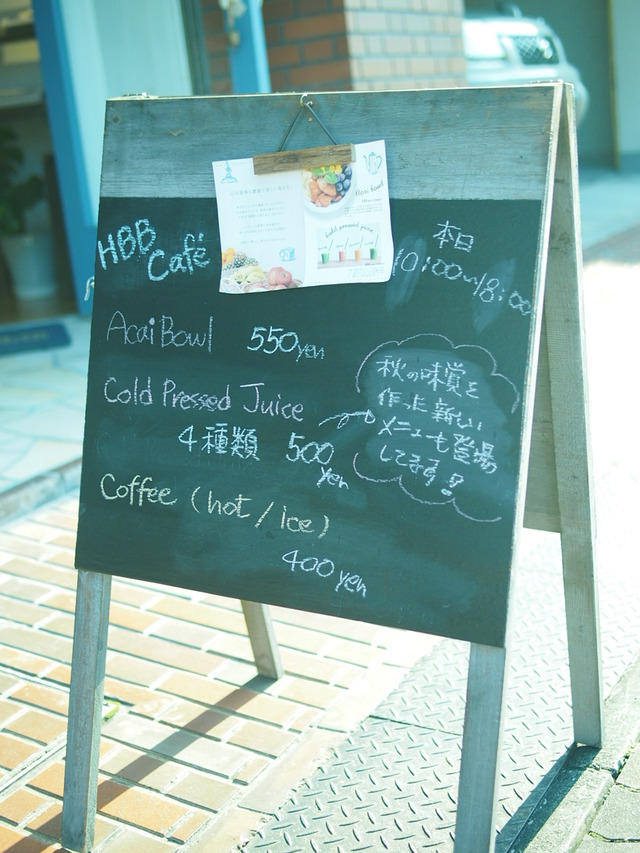 HBB
Café
本日
10:00~18:00
Acai Bowl 550yen
Cold Pressed Juice
4種類 500
yen
秋の味覚を
作った新しい
メニューも登場
してます!
Coffee (hot/ice)
400yen
Acai bowl
cold pressed juice